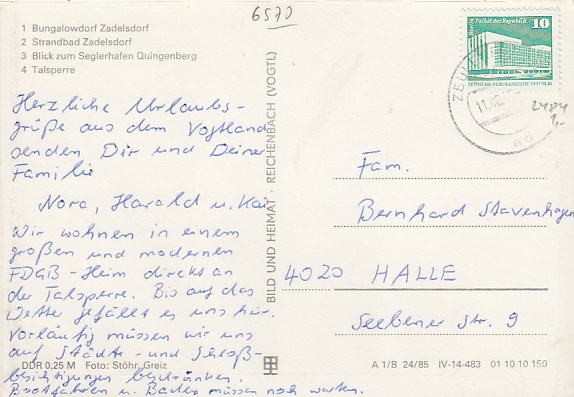 6570
1 Bungalowdorf Zadelsdorf
2 Strandbad Zadelsdorf
3 Blick zum Seglerhafen Quingenberg
4 Talsperre
Herzliche Urlaubs-
grüße aus dem Vogtland
senden Dir und Deiner
Familie
Nora, Harald u. Kai
Wir wohnen in einem
großen und modernen
FDGB-Heim direkt an
der Talsperre. Bis auf das
Wetter gefällt es uns hier.
Vorläufig müssen wir uns
auf Städte- und Schloß-
besichtigungen beschränken.
Bootfahren u. Baden müssen noch warten.
DDR 0,25 M Foto: Stöhr, Greiz
BILD UND HEIMAT · REICHENBACH (VOGTL)
Berlin, Palast der Republik
10
DEUTSCHE DEMOKRATISCHE REPUBLIK
2484
1,-
Fam.
Bernhard Stavenhagen
4020 HALLE
Seebener Str. 9
A 1/B 24/85 IV-14-483 01 10 10 150